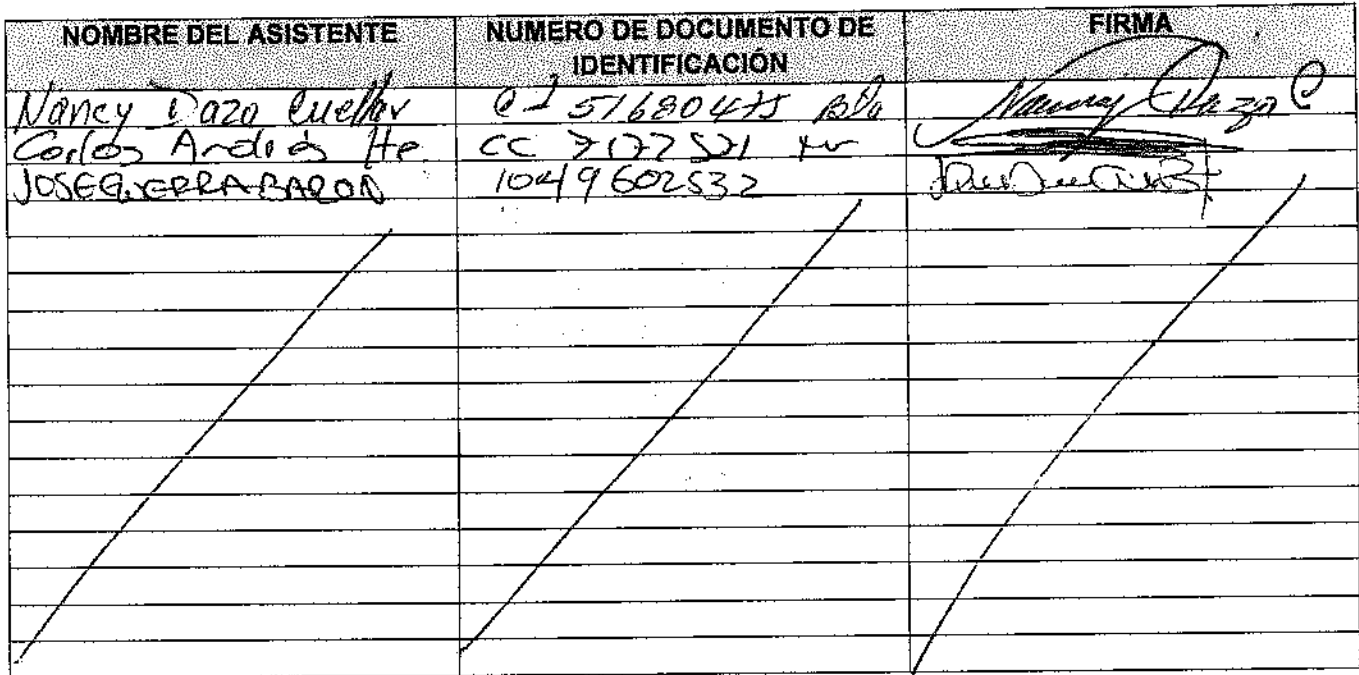 NOMBRE DEL ASISTENTE NUMERO DE DOCUMENTO DE IDENTIFICACIÓN FIRMA
Nancy Dazo Cuellar 51680475 Nancy Dazo C
Carlos Andrés He. CC 7177521
JOSE GUERRA BARON 1049602532